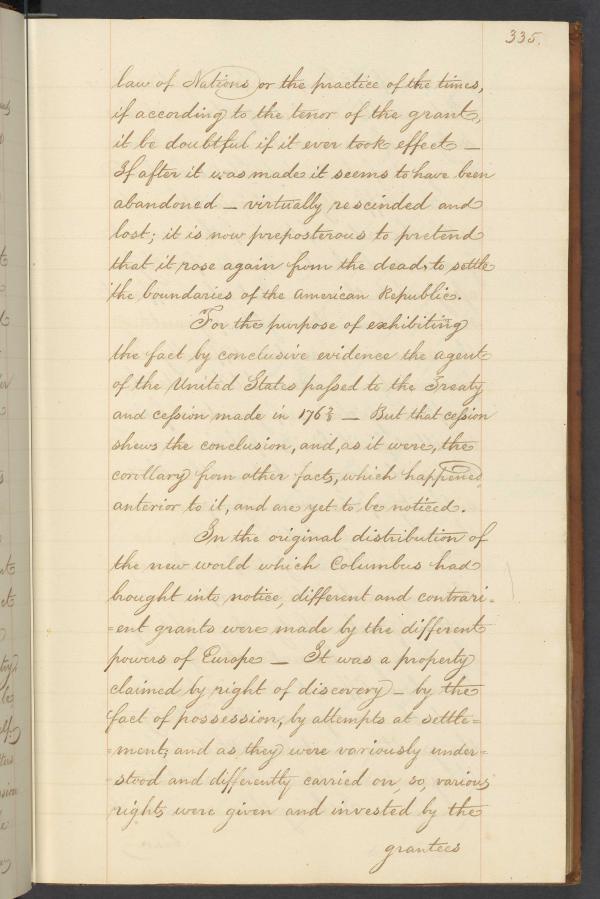 335.
law of Nations or the practice of the times,
if according to the tenor of the grant,
it be doubtful if it ever took effect —
If after it was made it seems to have been
abandoned — virtually rescinded and
lost; it is now preposterous to pretend
that it rose again from the dead, to settle
the boundaries of the American Republic.
For the purpose of exhibiting
the fact by conclusive evidence the agent
of the United States passed to the Treaty
and cession made in 1763 — But that cession
shews the conclusion, and, as it were, the
corollary from other facts, which happened
anterior to it, and are yet to be noticed.
In the original distribution of
the new world which Columbus had
brought into notice, different and contrari-
=ent grants were made by the different
powers of Europe — It was a property
claimed by right of discovery — by the
fact of possession, by attempts at settle=
=ment; and as they were variously under=
=stood and differently carried on, so, various
rights were given and invested by the
grantees